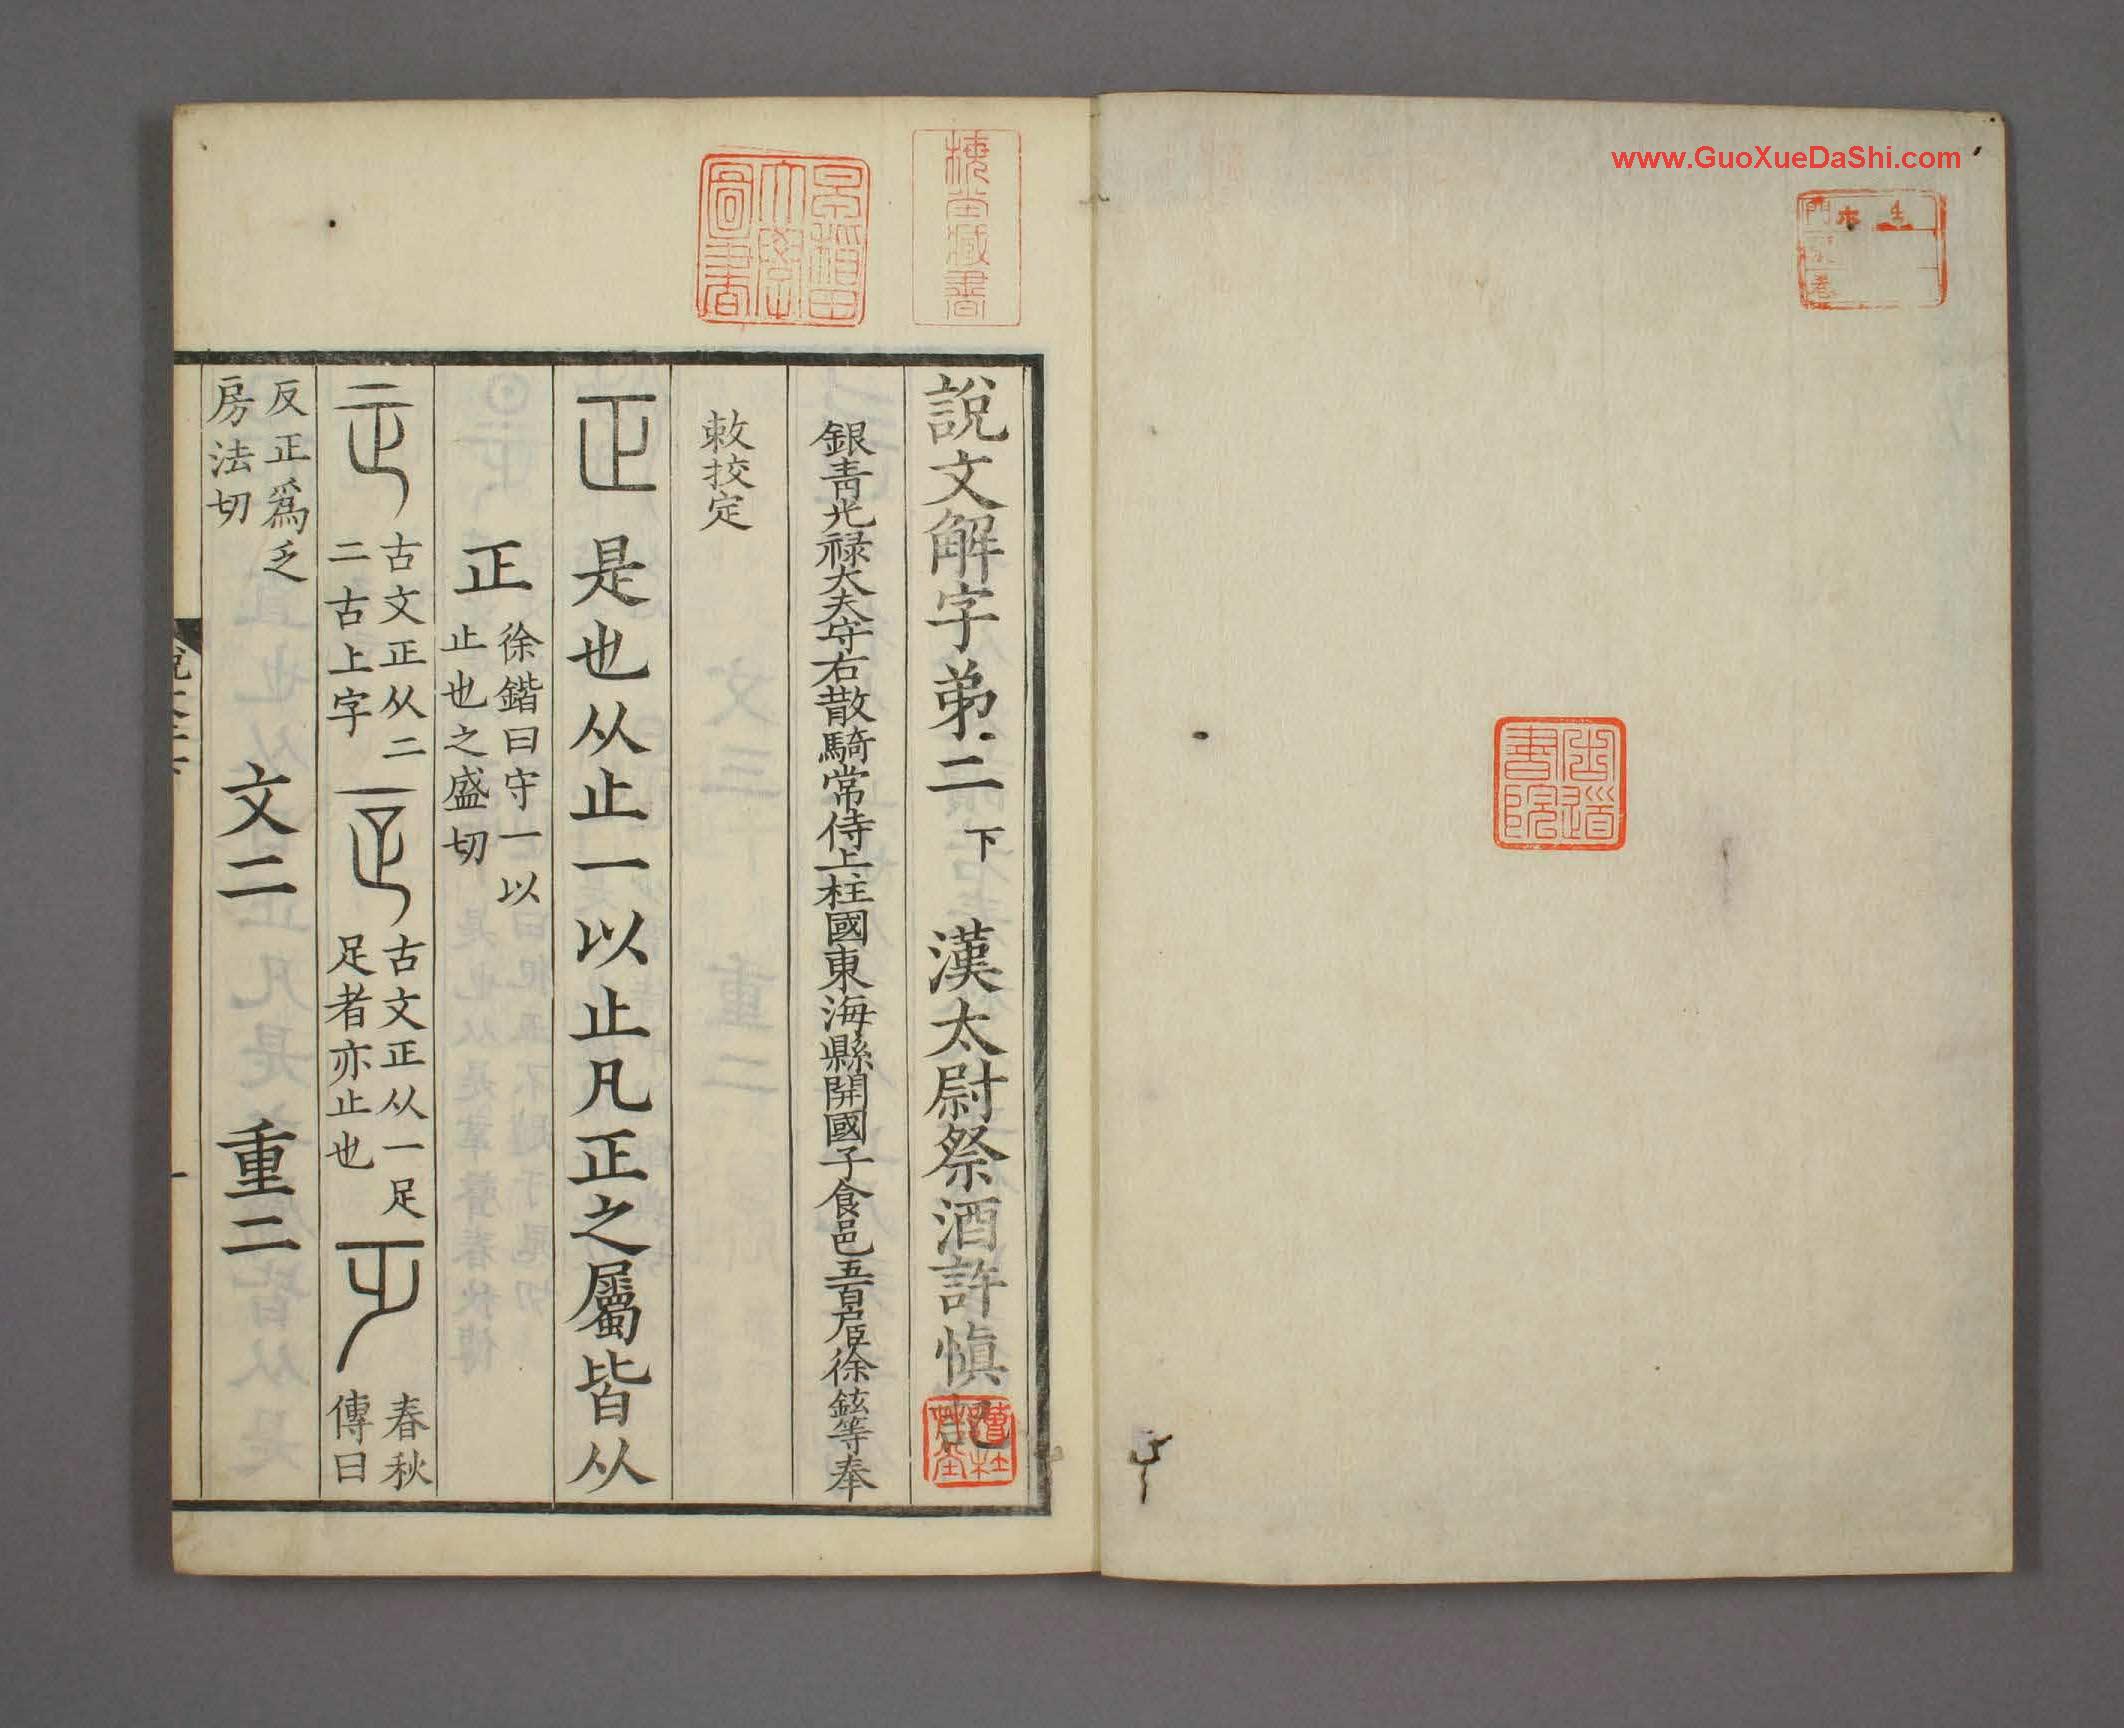 www.GuoXueDaShi.com
說文解字弟二下 漢太尉祭酒許慎記
銀青光禄大夫守右散騎常侍上柱國東海縣開國子食邑五百戶臣徐鉉等奉
敕挍定
正 是也从止一以止凡正之屬皆从
正 徐鍇曰守一以
止也之盛切
古文正从二
二古上字
古文正从一足
足者亦止也
春秋
傳曰
反正爲乏
房法切
文二 重二